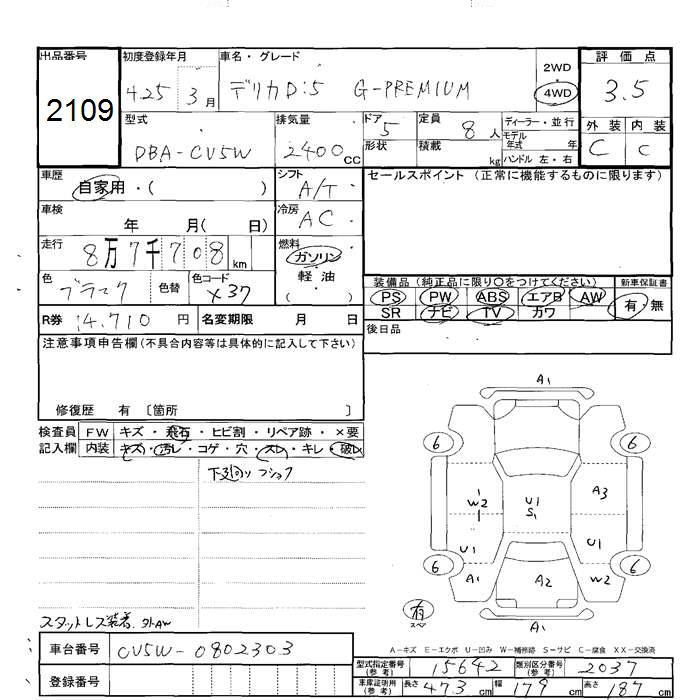 出品番号 初度登録年月 車名・グレード 2WD 評価点
2109 H25 3月 デリカD:5 G-PREMIUM 4WD 3.5
型式 排気量 ドア 定員 ディーラー・並行 外装 内装
DBA-CV5W 2400cc 5 8人 モデル年式 年 C C
形状 積載 kg ハンドル 左・右
車歴 シフト セールスポイント (正常に機能するものに限ります)
自家用・( ) A/T
車検 冷房
年 月( 日) AC
走行 燃料
8万7千708km ガソリン
色 色替 色コード 軽油
ブラック X37 ( )
装備品 (純正品に限り○をつけてください) 新車保証書
PS PW ABS エアB AW 有・無
SR ナビ TV カワ
R券 14,710円 名変期限 月 日 後日品
注意事項申告欄(不具合内容等は具体的に記入して下さい)
修復歴 有 〔箇所 〕
検査員 FW キズ・飛石・ヒビ割・リペア跡・×要
記入欄 内装 キズ・汚レ・コゲ・穴・スレ・キレ・破レ
下廻り
A1
6 6
W2 U1 S1 A3
U1 U1
6 6
A1 A2 W2
有 スペア
A1
スタットレス装着. 外AW
A-キズ E-エクボ U-凹み W-補修跡 S-サビ C-腐食 XX-交換済
車台番号 CV5W-0802303
型式指定番号(参考) 15642 類別区分番号(参考) 2037
登録番号
車庫証明用(参考) 長さ 473cm 幅 179cm 高さ 187cm